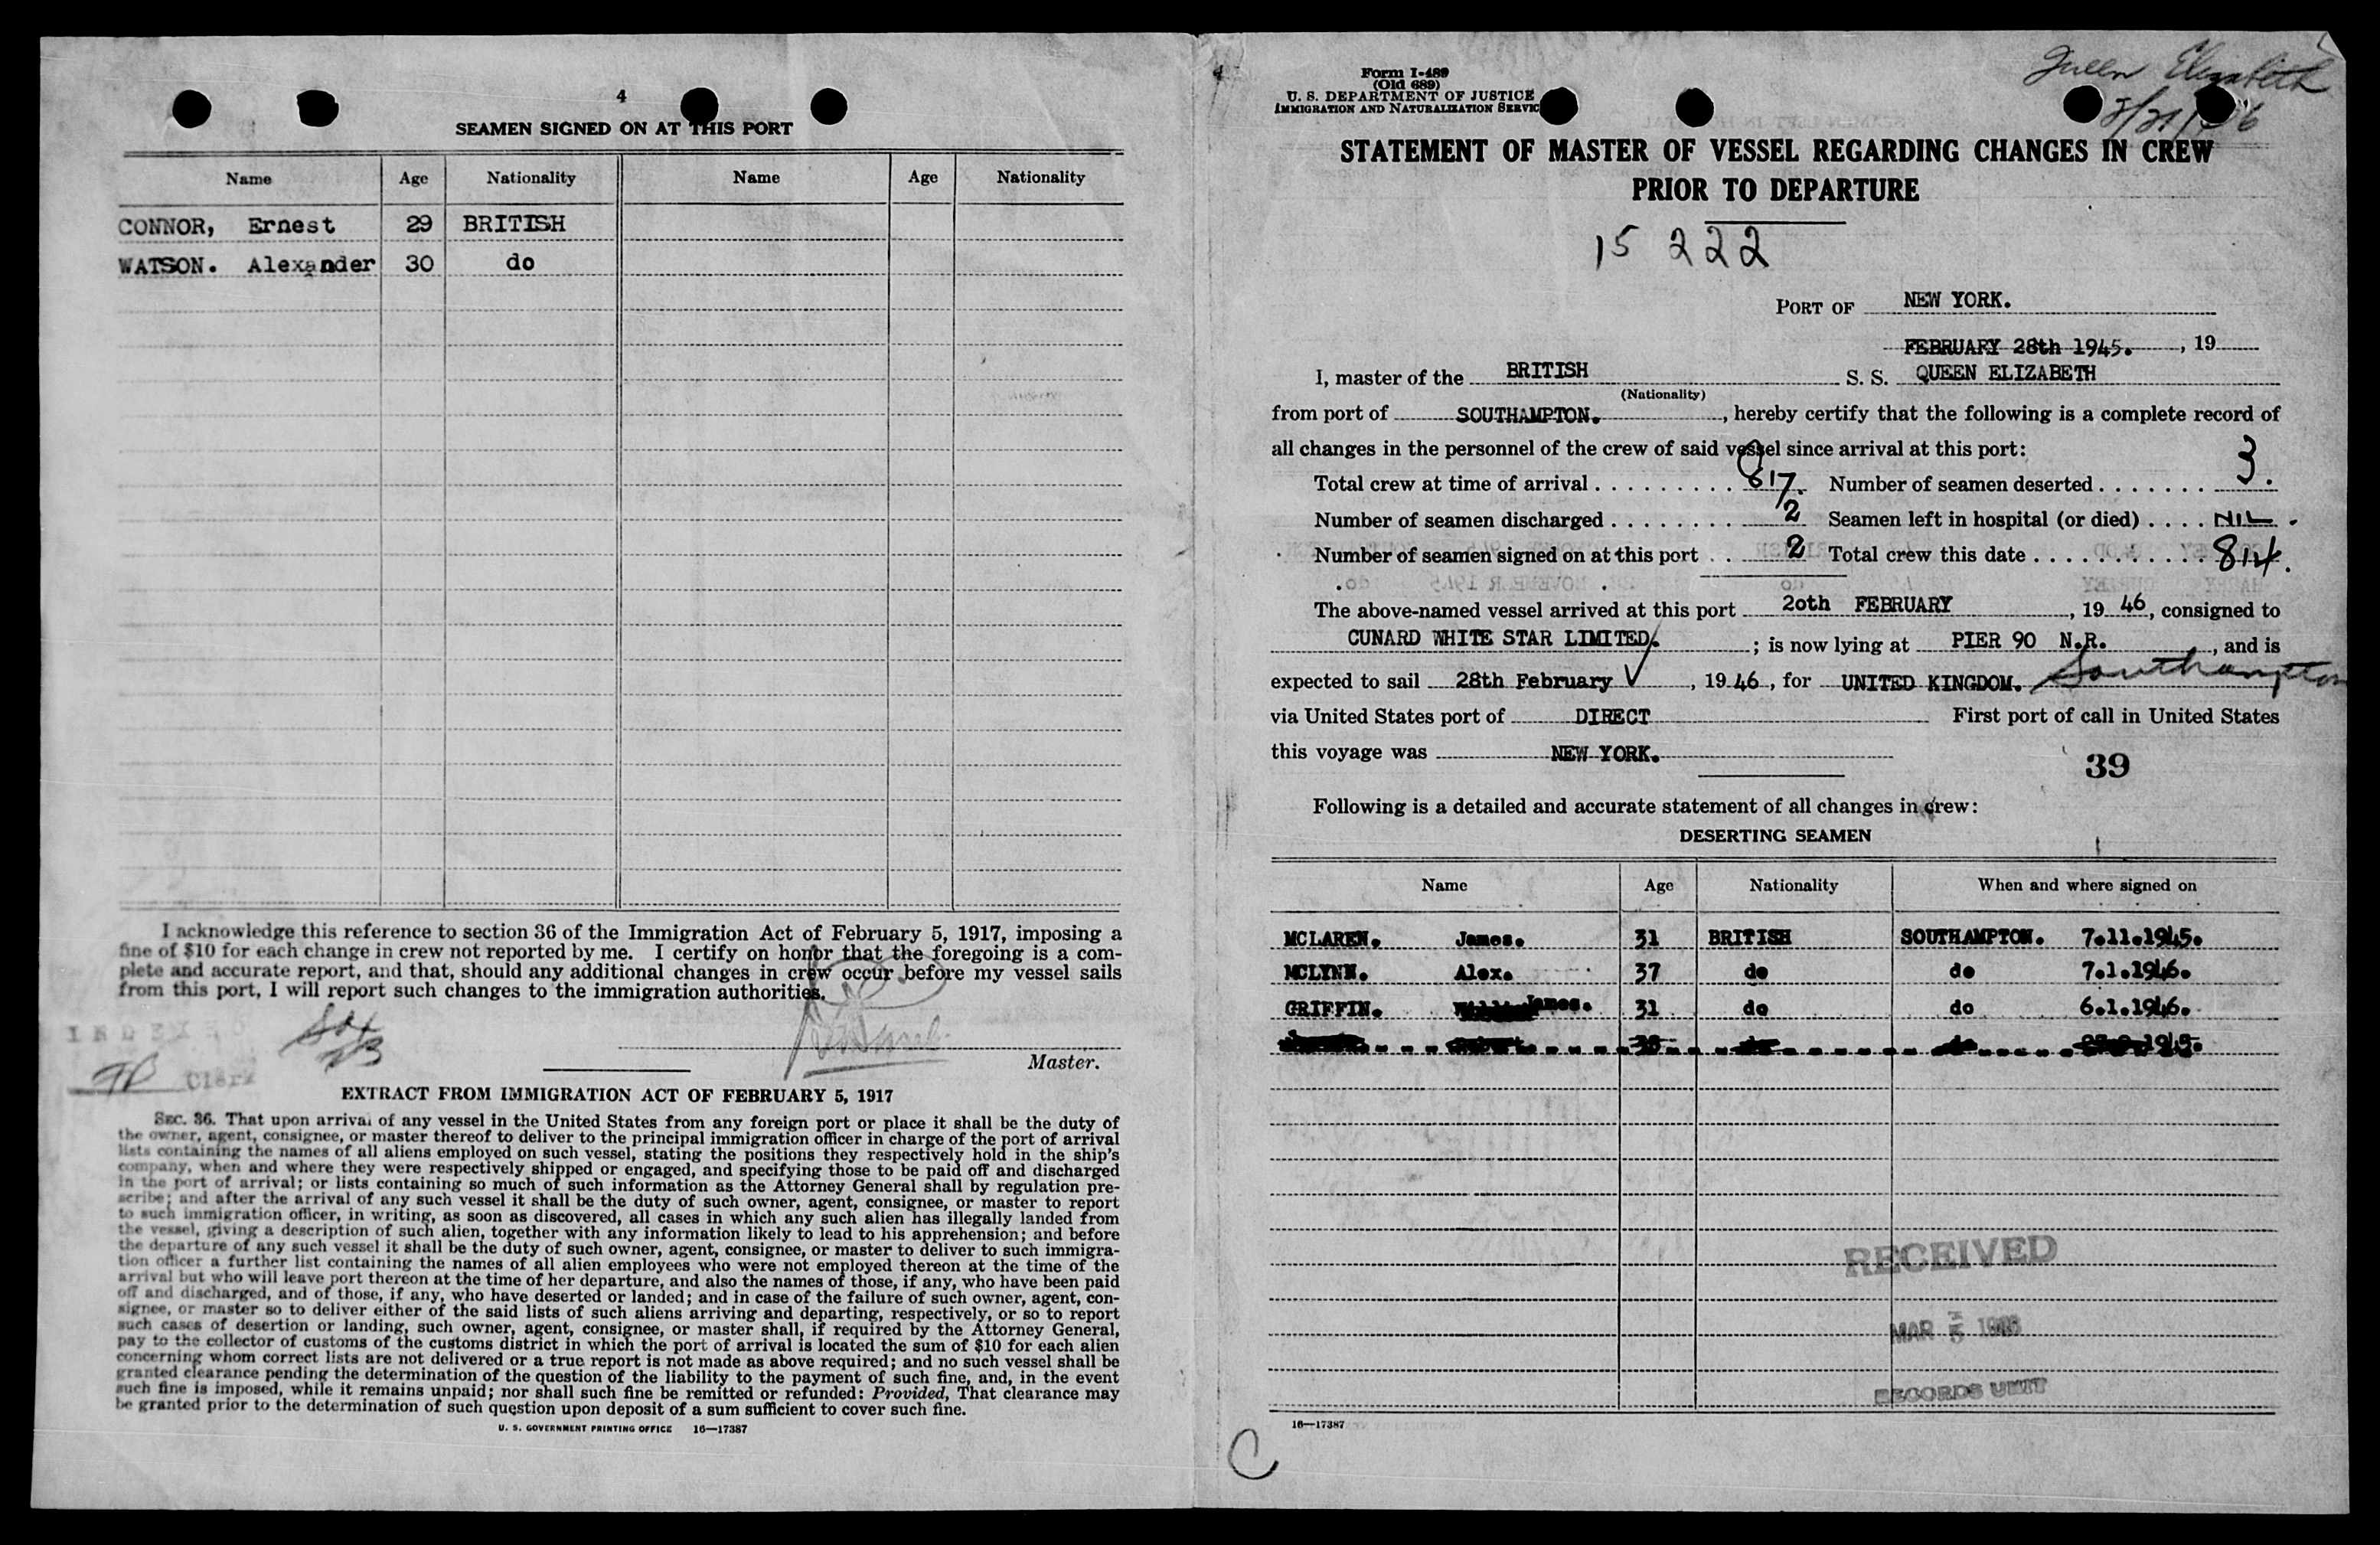 4
SEAMEN SIGNED ON AT THIS PORT
Name Age Nationality Name Age Nationality
CONNOR, Ernest 29 BRITISH
WATSON. Alexander 30 do
I acknowledge this reference to section 36 of the Immigration Act of February 5, 1917, imposing a
fine of $10 for each change in crew not reported by me. I certify on honor that the foregoing is a com-
plete and accurate report, and that, should any additional changes in crew occur before my vessel sails
from this port, I will report such changes to the immigration authorities.
INDEXED
Clerk
Master.
EXTRACT FROM IMMIGRATION ACT OF FEBRUARY 5, 1917
SEC. 36. That upon arrival of any vessel in the United States from any foreign port or place it shall be the duty of
the owner, agent, consignee, or master thereof to deliver to the principal immigration officer in charge of the port of arrival
lists containing the names of all aliens employed on such vessel, stating the positions they respectively hold in the ship's
company, when and where they were respectively shipped or engaged, and specifying those to be paid off and discharged
in the port of arrival; or lists containing so much of such information as the Attorney General shall by regulation pre-
scribe; and after the arrival of any such vessel it shall be the duty of such owner, agent, consignee, or master to report
to such immigration officer, in writing, as soon as discovered, all cases in which any such alien has illegally landed from
the vessel, giving a description of such alien, together with any information likely to lead to his apprehension; and before
the departure of any such vessel it shall be the duty of such owner, agent, consignee, or master to deliver to such immigra-
tion officer a further list containing the names of all alien employees who were not employed thereon at the time of the
arrival but who will leave port thereon at the time of her departure, and also the names of those, if any, who have been paid
off and discharged, and of those, if any, who have deserted or landed; and in case of the failure of such owner, agent, con-
signee, or master so to deliver either of the said lists of such aliens arriving and departing, respectively, or so to report
such cases of desertion or landing, such owner, agent, consignee, or master shall, if required by the Attorney General,
pay to the collector of customs of the customs district in which the port of arrival is located the sum of $10 for each alien
concerning whom correct lists are not delivered or a true report is not made as above required; and no such vessel shall be
granted clearance pending the determination of the question of the liability to the payment of such fine, and, in the event
such fine is imposed, while it remains unpaid; nor shall such fine be remitted or refunded: Provided, That clearance may
be granted prior to the determination of such question upon deposit of a sum sufficient to cover such fine.
U. S. GOVERNMENT PRINTING OFFICE 16—17387
Form I-489
(Old 689)
U. S. DEPARTMENT OF JUSTICE
IMMIGRATION AND NATURALIZATION SERVIC
Queen Elizabeth
STATEMENT OF MASTER OF VESSEL REGARDING CHANGES IN CREW
PRIOR TO DEPARTURE
15 222
PORT OF NEW YORK.
FEBRUARY 28th 1945. , 19
I, master of the BRITISH S. S. QUEEN ELIZABETH
(Nationality)
from port of SOUTHAMPTON. , hereby certify that the following is a complete record of
all changes in the personnel of the crew of said vessel since arrival at this port:
Total crew at time of arrival 817. Number of seamen deserted 3.
Number of seamen discharged 2 Seamen left in hospital (or died) NIL.
Number of seamen signed on at this port 2 Total crew this date 814.
The above-named vessel arrived at this port 20th FEBRUARY , 19 46, consigned to
CUNARD WHITE STAR LIMITED. ; is now lying at PIER 90 N.R. , and is
expected to sail 28th February , 19 46, for UNITED KINGDOM. Southampton
via United States port of DIRECT First port of call in United States
this voyage was NEW YORK.
39
Following is a detailed and accurate statement of all changes in crew:
DESERTING SEAMEN
Name Age Nationality When and where signed on
MCLAREN. James. 31 BRITISH SOUTHAMPTON. 7.11.1945.
MCLYNN. Alex. 37 do do 7.1.1946.
GRIFFIN. James. 31 do do 6.1.1946.
RECEIVED
MAR 5 1946
RECORDS UNIT
16—17387
C